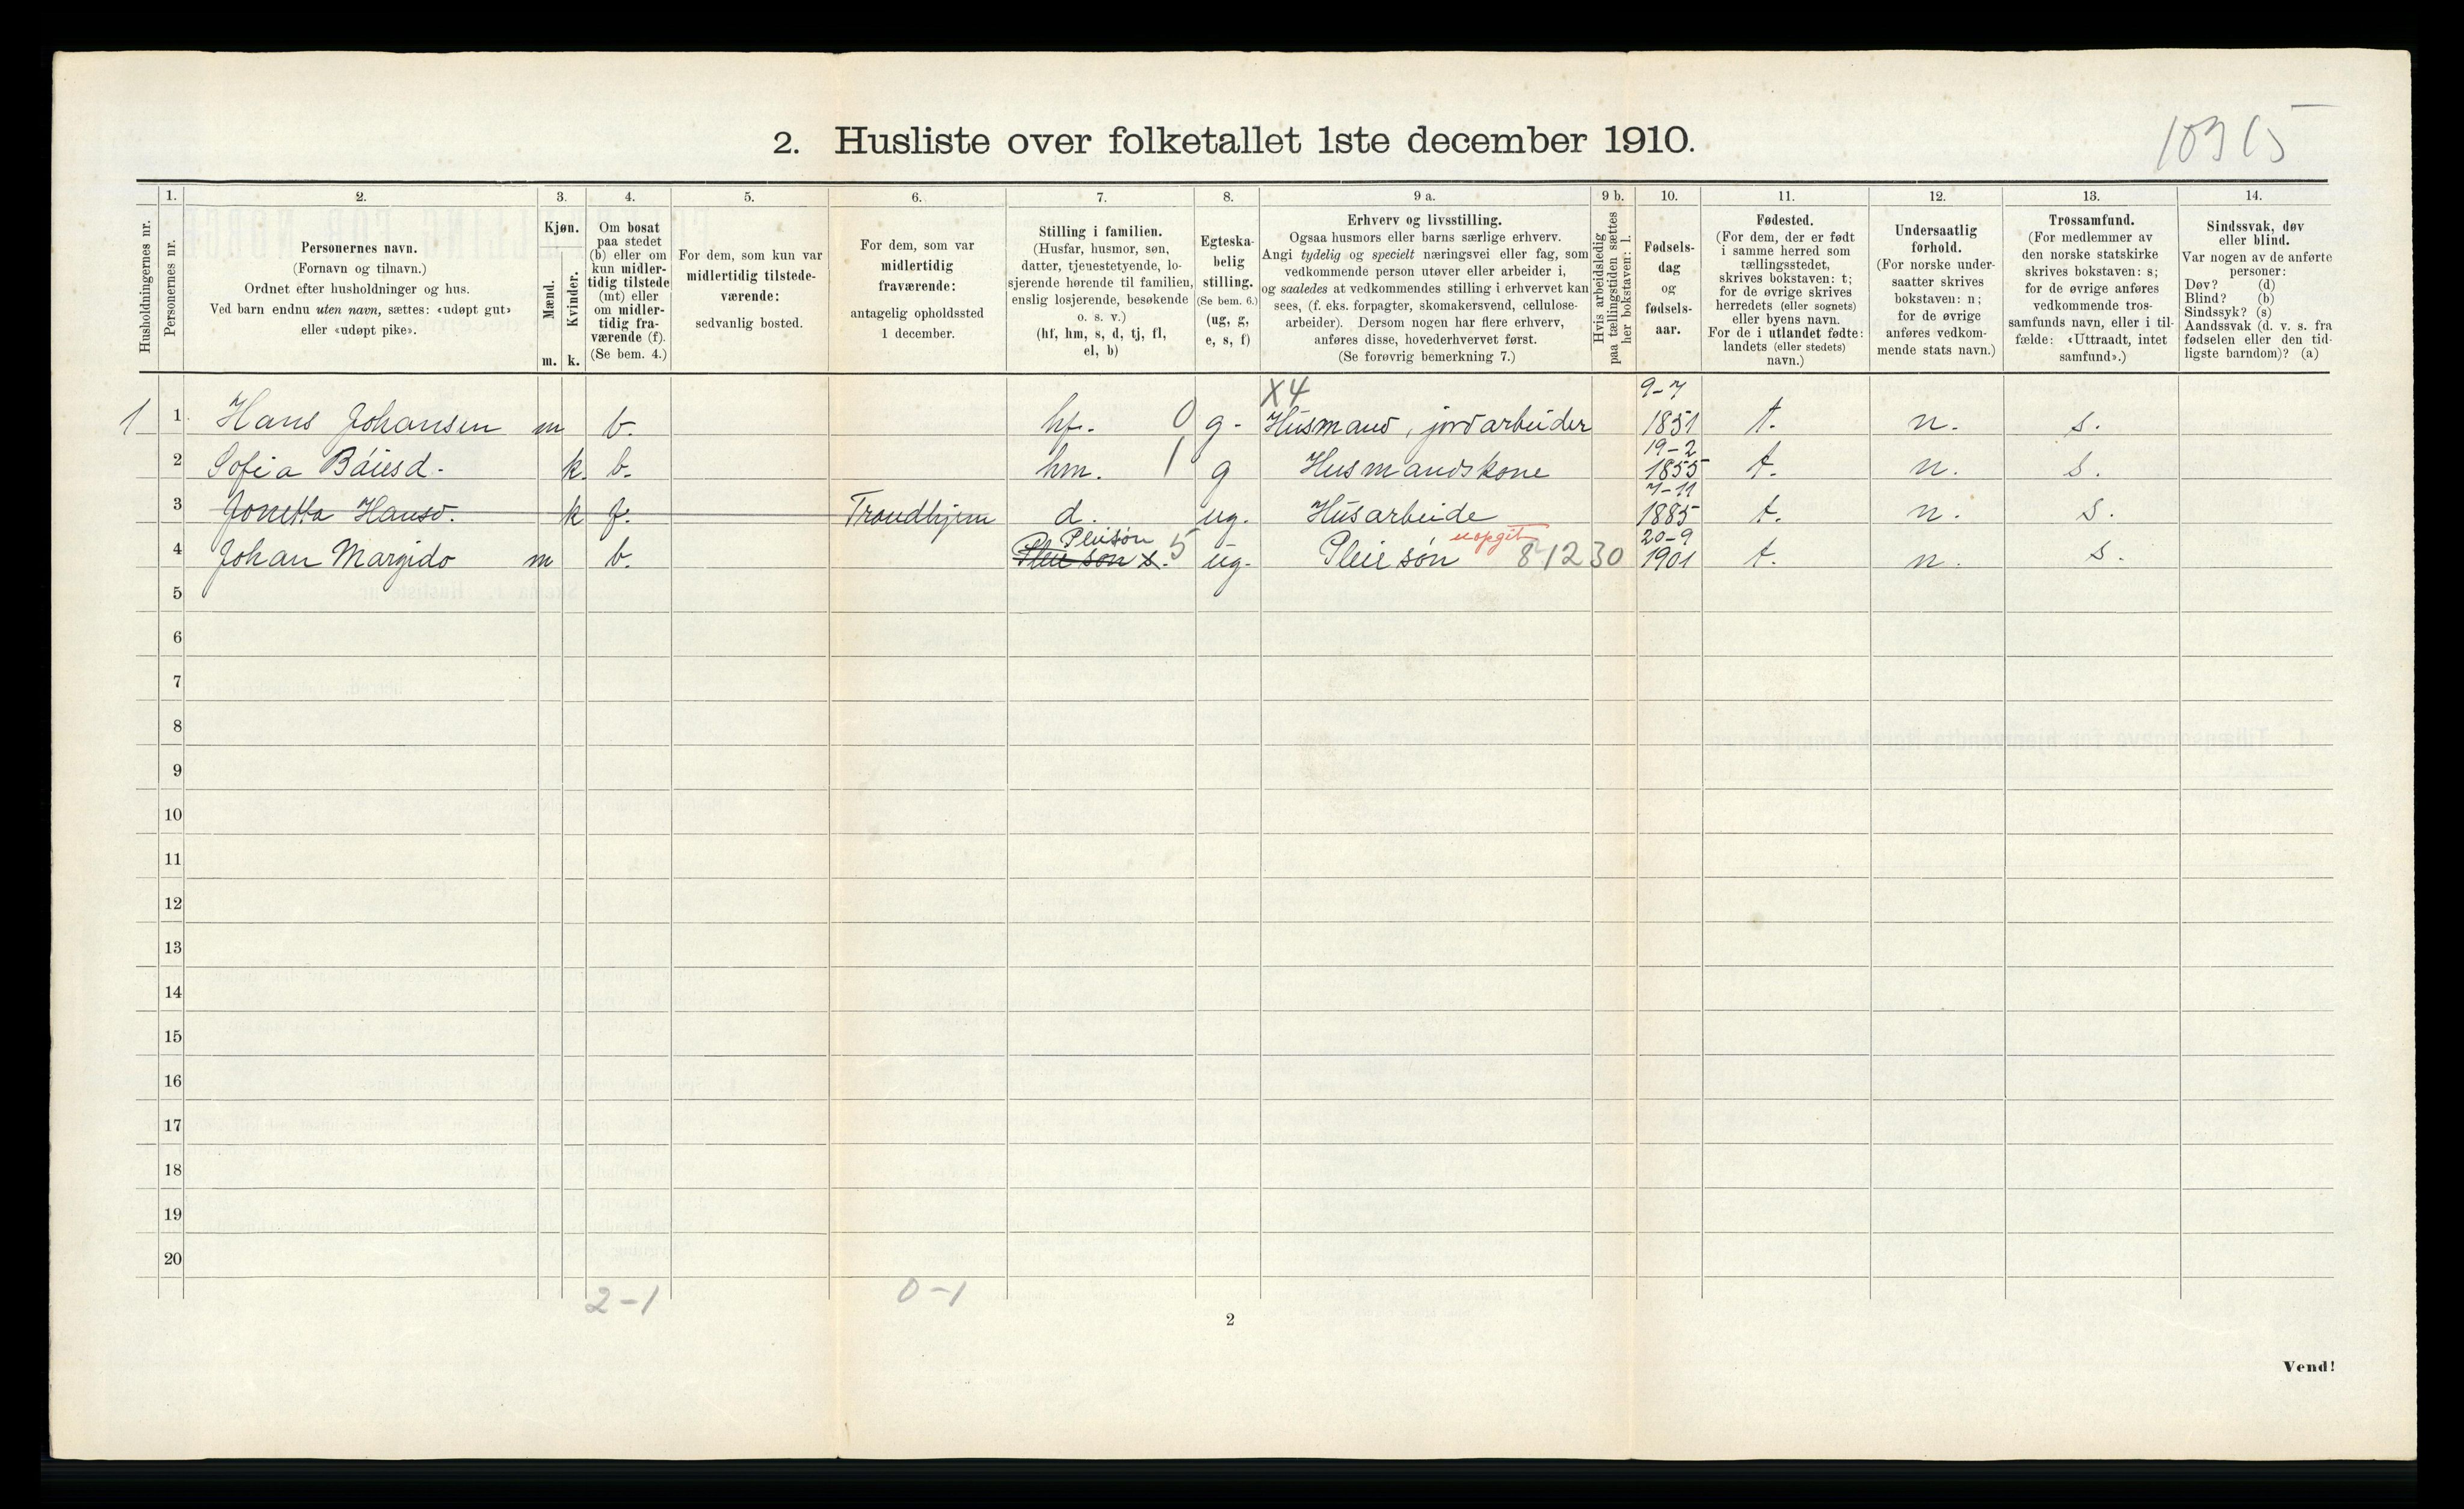 2. Husliste over folketallet 1ste december 1910.
10915
1. 2. 3. 4. 5. 6. 7. 8. 9 a. 9 b. 10. 11. 12. 13. 14.
Husholdningernes nr.
Personernes nr.
Personernes navn.
(Fornavn og tilnavn.)
Ordnet efter husholdninger og hus.
Ved barn endnu uten navn, sættes: «udøpt gut»
eller «udøpt pike».
Kjøn.
Mænd.
Kvinder.
m. k.
Om bosat
paa stedet
(b) eller om
kun midler-
tidig tilstede
(mt) eller
om midler-
tidig fra-
værende (f).
(Se bem. 4.)
For dem, som kun var
midlertidig tilstede-
værende:
sedvanlig bosted.
For dem, som var
midlertidig
fraværende:
antagelig opholdssted
1 december.
Stilling i familien.
(Husfar, husmor, søn,
datter, tjenestetyende, lo-
sjerende hørende til familien,
enslig losjerende, besøkende
o. s. v.)
(hf, hm, s, d, tj, fl,
el, b)
Egteska-
belig
stilling.
(Se bem. 6.)
(ug, g,
e, s, f)
Erhverv og livsstilling.
Ogsaa husmors eller barns særlige erhverv.
Angi tydelig og specielt næringsvei eller fag, som
vedkommende person utøver eller arbeider i,
og saaledes at vedkommendes stilling i erhvervet kan
sees, (f. eks. forpagter, skomakersvend, cellulose-
arbeider). Dersom nogen har flere erhverv,
anføres disse, hovederhvervet først.
(Se forøvrig bemerkning 7.)
Hvis arbeidsledig
paa tællingstiden sættes
her bokstaven: l.
Fødsels-
dag
og
fødsels-
aar.
Fødested.
(For dem, der er født
i samme herred som
tællingsstedet,
skrives bokstaven: t;
for de øvrige skrives
herredets (eller sognets)
eller byens navn.
For de i utlandet fødte:
landets (eller stedets)
navn.)
Undersaatlig
forhold.
(For norske under-
saatter skrives
bokstaven: n;
for de øvrige
anføres vedkom-
mende stats navn.)
Trossamfund.
(For medlemmer av
den norske statskirke
skrives bokstaven: s;
for de øvrige anføres
vedkommende tros-
samfunds navn, eller i til-
fælde: «Uttraadt, intet
samfund».)
Sindssvak, døv
eller blind.
Var nogen av de anførte
personer:
Døv? (d)
Blind? (b)
Sindssyk? (s)
Aandssvak (d. v. s. fra
fødselen eller den tid-
ligste barndom)? (a)
X4 9-7
1 1 Hans Johansen m b. hf. 0 g. Husmand, jordarbeider 1851 t. n. s.
19-2
2 Sofia k. b. hm. 1 g Husmandskone 1855 t. n. s.
7-11
3 Jonetta Hansd. k f. Trondhjem d. ug. Husarbeide 1885 t. n. s.
Pleisøn uopgit 20-9
4 Johan Margido m b. Pleie søn s. 5 ug. Pleie søn 81230 1901 t. n. s.
5
6
7
8
9
10
11
12
13
14
15
16
17
18
19
20
2-1 0-1
2
Vend!